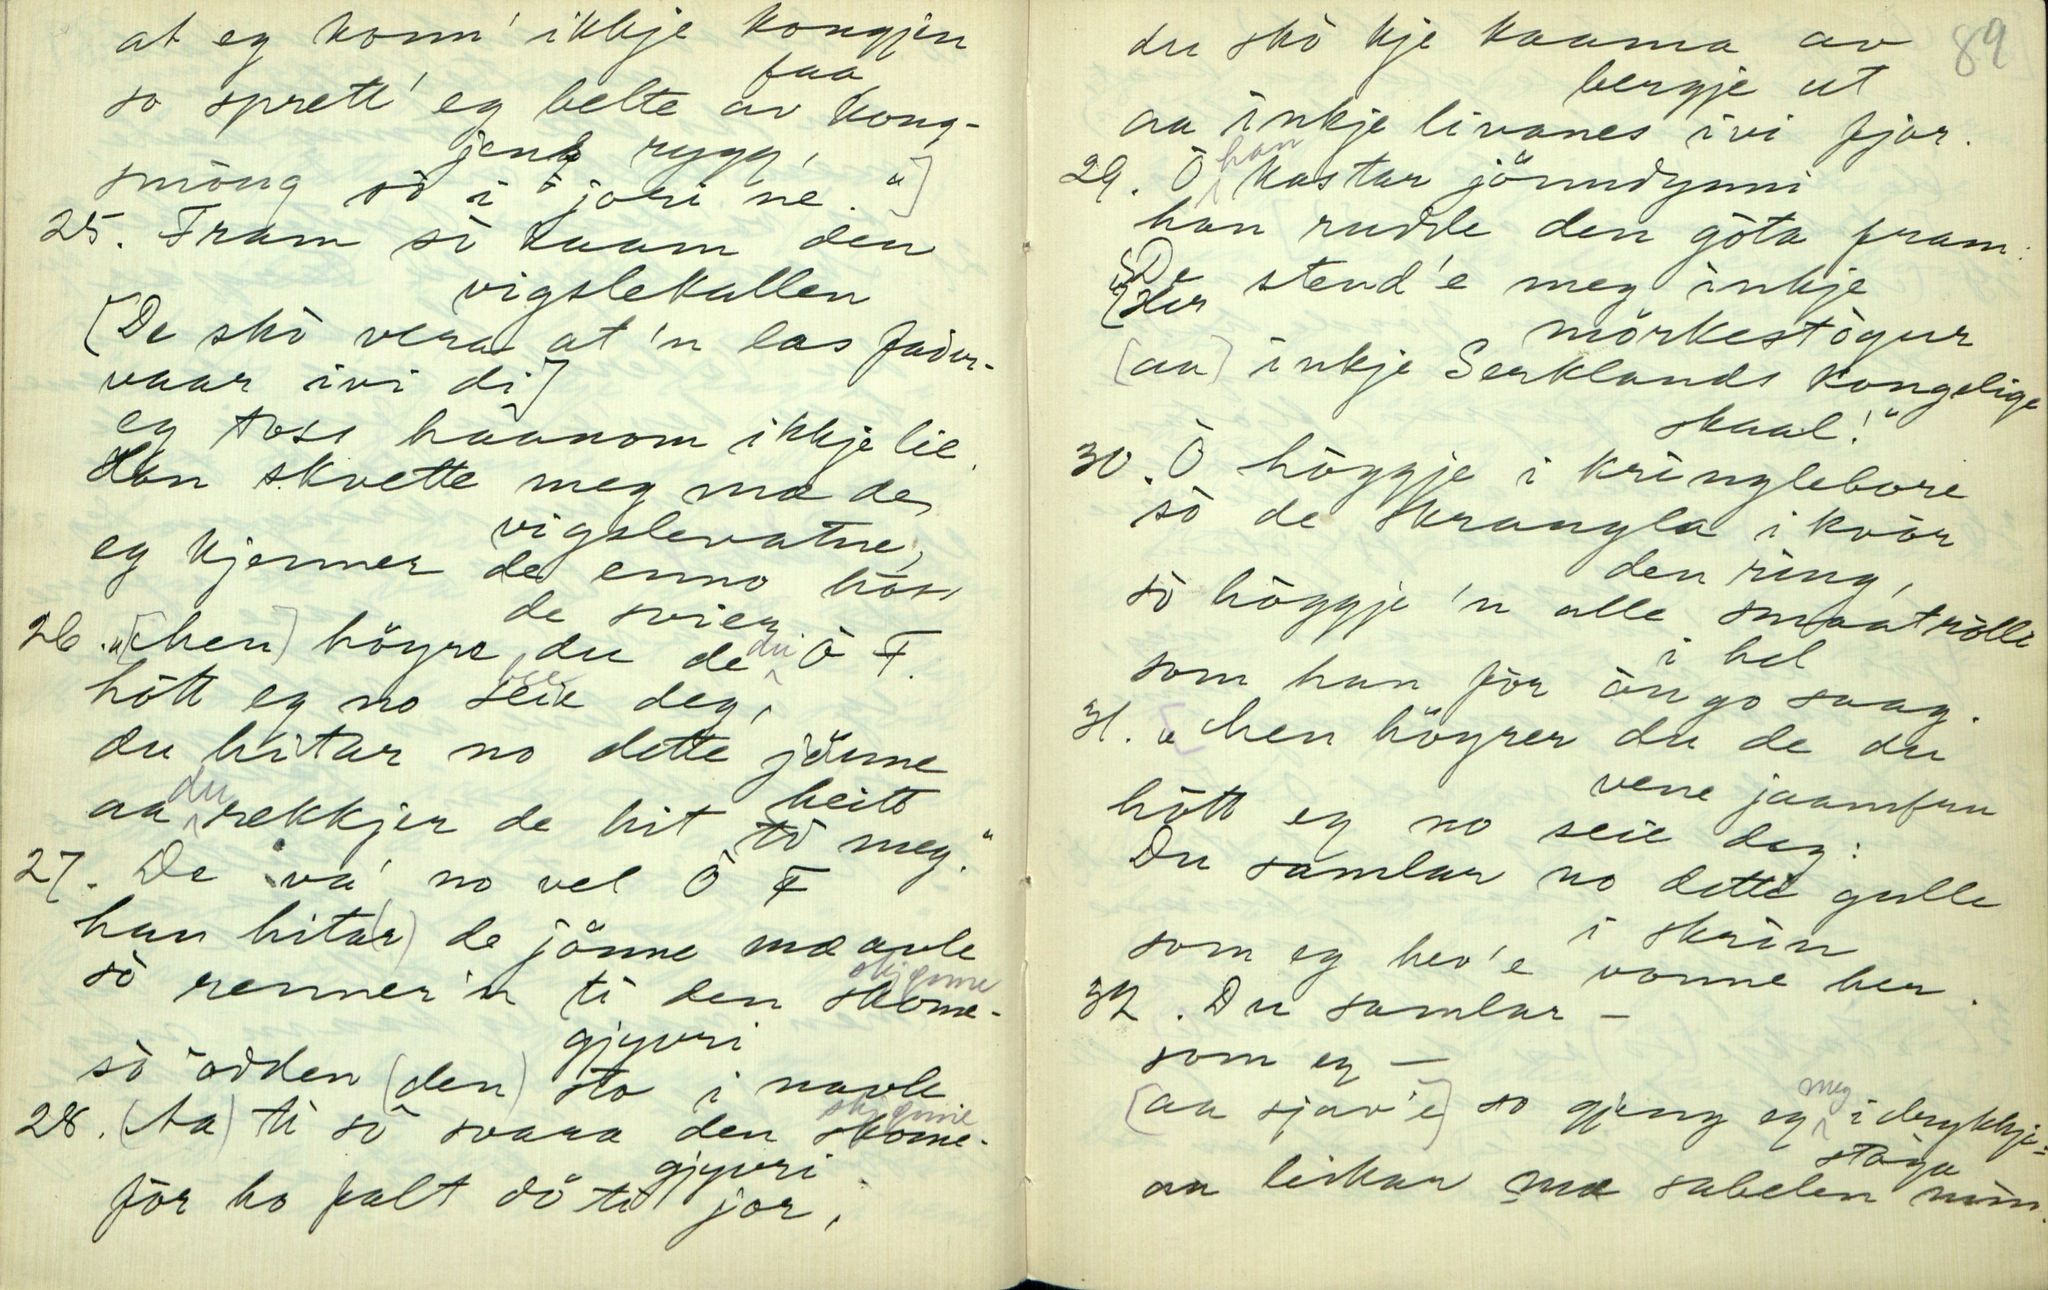 at eg komm' ikkje kongjen
faa
so sprett' eg belte av kong-
jens rygg,
smöng sò i jori ne."]
25. Fram sò kaam den
vigslekallen
[De skò vera at 'n las fader-
vaar ivi di]
eg toss håånom ikkje lie.
Han skvette meg mæ de
vigslevatne,
eg kjenner de enno hoss
de svier
26. "[hen] höyre du de du Ò F.
hòtt eg no seie deg,
du hitar no dette jönne
heitt
aa du rekkjer de hit tò meg."
27. De va' no vel Ò F
han hita(r) de jönne mæ avle
skjeme
sò renner'n ti den skome-
gjyvri
sò òdden (den) sto i navle
28. (Aa) ti sò svara den skome-
skjeme
gjyvri
för ho falt dö ti jor,
89
du skò kje kaama av
bergje ut
aa inkje livanes ivi fjor.
29. Ò han kastar jönndynni
han rudde den göta fram:
"De stend'e meg inkje
Her
mörkestògur
[aa] inkje Serklands kongelige
skaal!"
30. Ò höggje i kringlebore
sò de skrangla i kvör
den ring,
sò höggje 'n alle smaatrölli
i hel
som han för öugo saag.
31. "hen höyrer du de du
vene jaamfru
hòtt eg no seie deg:
Du samlar no dette gulle
i skrin
som eg hev'e vonne her.
32. Du samlar –
som eg –
[aa sjav'e] so gjeng eg meg i drykkje-
stògu
aa leikar mæ sabelen min.